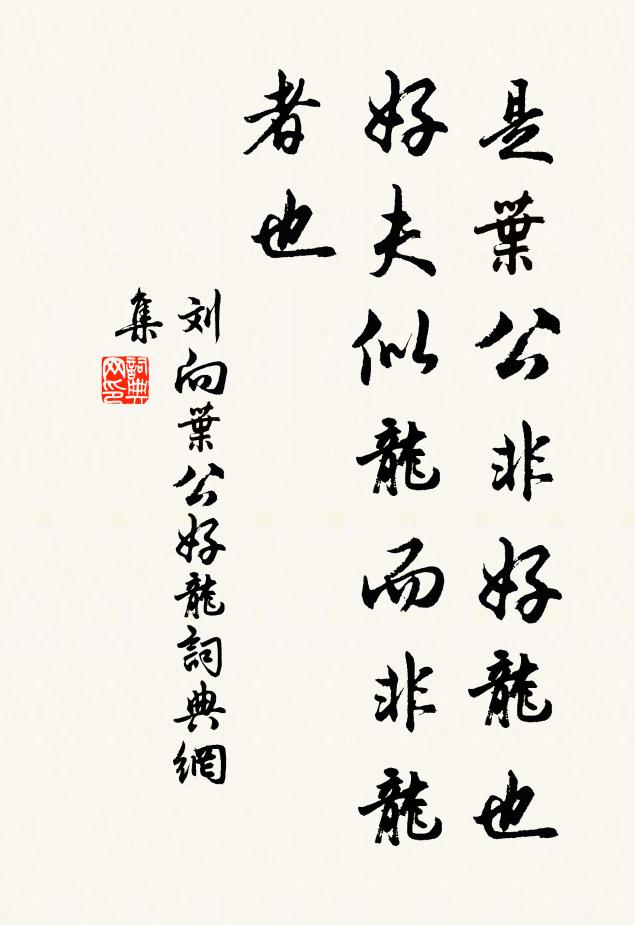 是葉公非好龍也
好夫似龍而非龍
者也
刘向葉公好龍詞典網
集
詞典网印